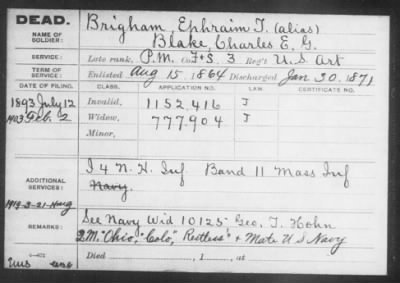 DEAD.
NAME OF SOLDIER:
Brigham, Ephraim T. (alias)
Blake, Charles E. G.
SERVICE:
Late rank, P.M. Co. F+S. 3 Reg't U.S. Art
TERM OF SERVICE:
Enlisted Aug 15. 1864 Discharged Jan 20. 1871
DATE OF FILING. CLASS. APPLICATION NO. LAW. CERTIFICATE NO.
1893 July 12 Invalid, 1152.416 J
1903 Feb. 2 Widow, 777.904 J
Minor,
ADDITIONAL SERVICES:
I 4 N.H. Inf Band 11 Mass Inf
Navy.
REMARKS:
See Navy Wid 10125 Geo. T. Hohn
2.M. "Ohio," "Colo," Restless" + Mate U.S Navy
Died , 1 , at